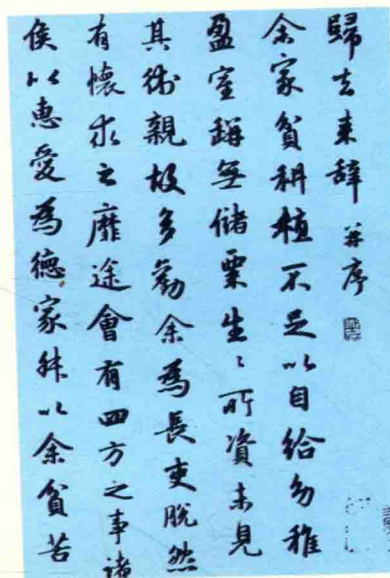 歸去来辭并序
余家貧耕植不足以自給幼稚
盈室缾無儲粟生〻所資未見
其術親故多勸余為長吏脫然
有懷求之靡途會有四方之事諸
侯以惠愛為德家叔以余貧苦